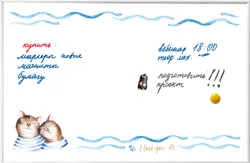 купить:
маркеры новые
магниты
бумагу
вебинар 18-00
подготовить !!!
проект
I love you